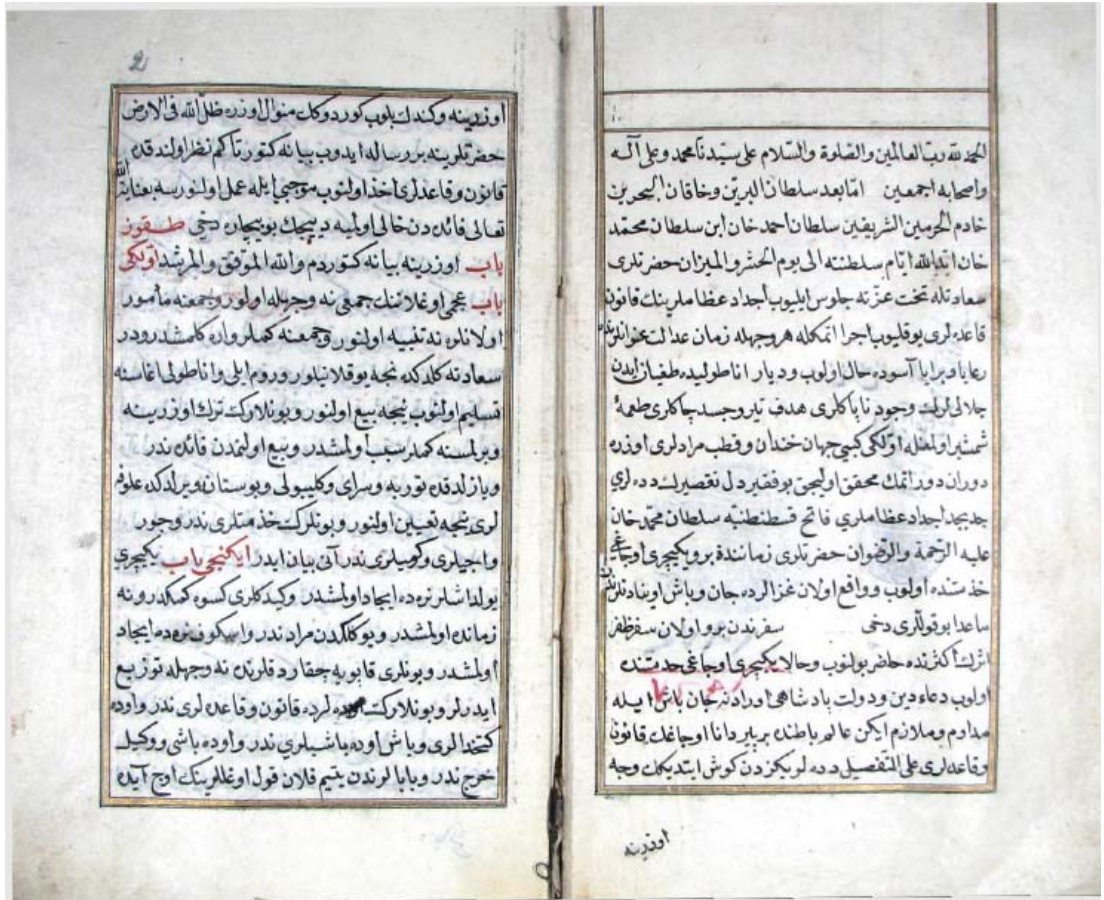 الحمد لله رب العالمين والصلوة والسلام على سيدنا محمد وعلى آله
واصحابه اجمعين امّا بعد سلطان البرين وخاقان البحرين
خادم الحرمين الشريفين سلطان احمد خان ابن سلطان محمّد
خان ابد الله ايّام سلطنته الى يوم الحشر والميزان حضرتلرى
سعادتله تخت عزّته جلوس ايليوب اجداد عظاملرينك قانون
قاعده لرى يوقليوب اجرا اتمكله هر وجهله زمان عدالت
رعايا وبرايا آسوده حال اولوب وديار اناطوليده طغيان ايدن
جلالى لرك وجود ناپاكلرى هدف تير وجسد چاكلرى طعمهٔ
شمشير اولمغله اوّلكى كبى جهان خندان وقطب مرادلرى اوزره
دوران دور اتمك محقق اوليجق بو فقير دل تقصيرك دده لرى
جد بجد اجداد عظاملرى فاتح قسطنطنيه سلطان محمّد خان
عليه الرحمة والرضوان حضرتلرى زماننده برو يكيچرى اوجاغى
خذمتنده اولوب وواقع اولان غزالرده جان وباش
ساعدا بو قوللرى دخى سفرندن برو اولان سفر ظفر
اثرك اكثرنده حاضر بولنوب وحالا يكيچرى اوجاغى خدمتنده
اولوب دعاء دين ودولت پادشاهى اورادنه جان باش ايله
مداوم وملازم ايكن عالم باطنده بر پير دانا اوجاغك قانون
وقاعده لرى على التفصيل دده لريكزدن كوش ايتديكك وجه
اوزرينه
2
اوزرينه وكندك بلوب كوردوكك منوال اوزره ظلّ الله فى الارض
حضرتلرينه بر رساله ايدوب بيانه كتور تا كم نظر اولندقده
قانون وقاعده لرى اخذ اولنوب موجبى ايله عمل اولنورسه بعناية الله
تعالى فائده دن خالى اولميه ديييجك بو بيچاره دخى طقوز
باب اوزرينه بيانه كتوردم والله الموفق والمرشد اوّلكى
باب عجمى اوغلاننك جمعى نه وجهله اولور وجمعنه مأمور
اولانلره نه تنبيه اولنور وجمعنه كملر واره كلمشدر ودر
سعادته كلدكده نجه يوقلانيلور وروم ايلى واناطولى اغاسنه
تسليم اولنوب نيجه بيع اولنور وبونلارك ترك اوزرينه
ويرلمسنه كملر سبب اولمشدر وبيع اولمدن فائده ندر
ويازلدقده توربه وسراى وكليبولى وبوستانه ويرلدكده علوفه
لرى نيجه تعيين اولنور وبونلرك خذمتلرى ندر وجور
واجيلرى وكوپيلرى ندر آنى بيان ايدر ايكنجى باب يكيچرى
يولداشلر نره ده ايجاد اولمشدر وكيدكلرى كسوه كمكدر ونه
زمانده اولمشدر وبو كلكدن مراد ندر واسكوف نره ده ايجاد
اولمشدر وبونلرى قاپويه چقاردقلرنده نه وجهله توزيع
ايدرلر وبونلارك اوده لرده قانون وقاعده لرى ندر واوده
كتخدالرى وباش اوده باشيلرى ندر واوده باشى ووكيل
خرج ندر وبابالرندن يتيم قلان قول اوغللرينك اوج آيده